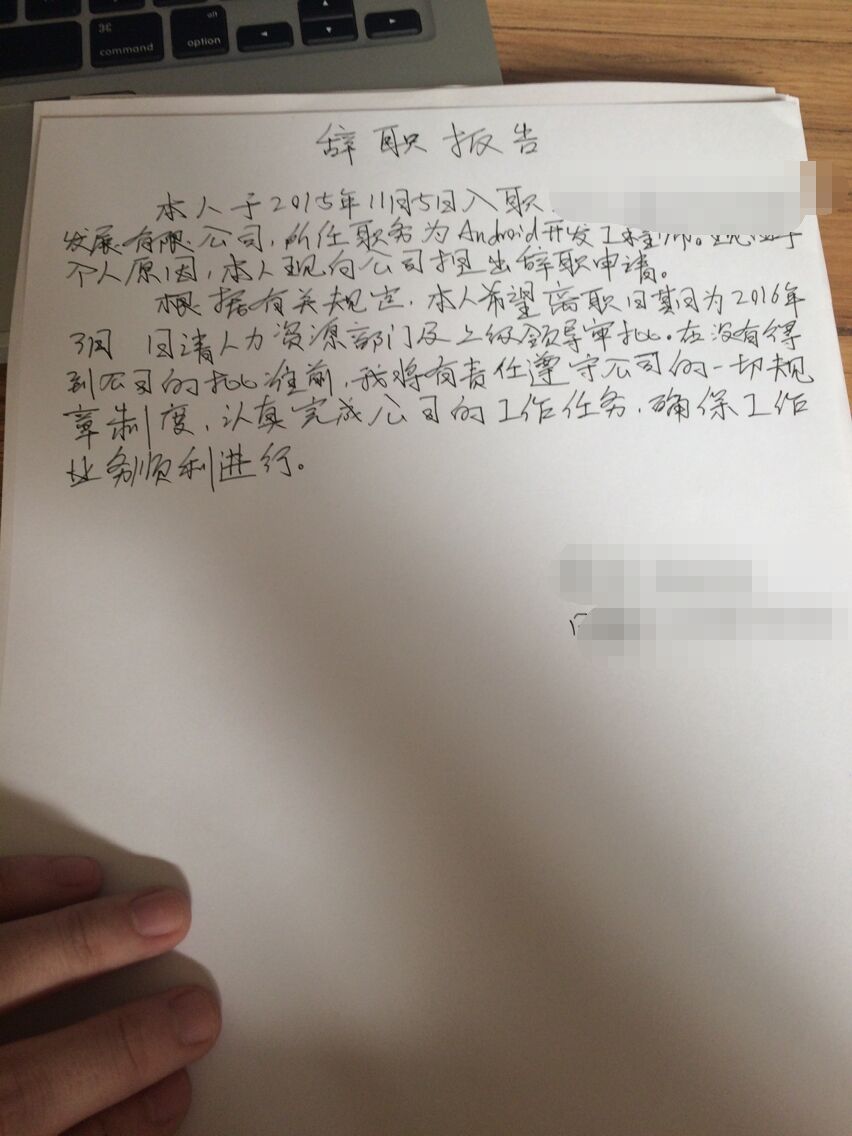 command
alt
option
辞职报告
本人于2015年11月5日入职
发展有限公司,所任职务为Android开发工程师。现由于
个人原因,本人现向公司提出辞职申请。
根据有关规定,本人希望离职日期为2016年
3月 日请人力资源部门及上级领导审批。在没有得
到公司的批准前,我将有责任遵守公司的一切规
章制度,认真完成公司的工作任务,确保工作
业务顺利进行。